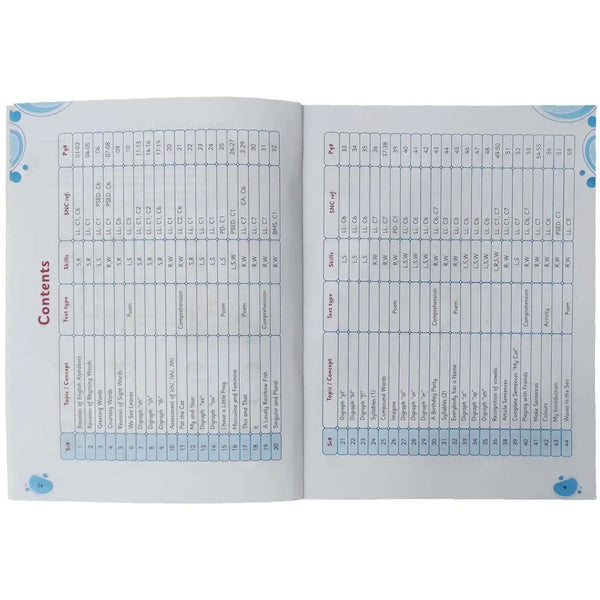 Contents
Sr# Topic / Concept Text type Skills SNC ref: Pg#
1 Revision of English Alphabets S,R LL: C1, C6 01-03
2 Revision of Rhyming Words S,R LL: C1 04-05
3 Greeting Words L,S LL: C1 PSED: C6 06
4 Courtesy Words R,W LL: C1 PSED: C6 07-08
5 Revision of Sight Words S,R LL: C6 09
6 We See Leaves Poem L,S LL: C5 10
7 Digraph "sh" S,R LL: C1, C2 11-13
8 Digraph "ch" S,R LL: C1 14-16
9 Digraph "th" S,R LL: C1, C2 17-19
10 Assessment of /ch/, /sh/, /th/ R,W LL: C1 20
11 Pat the Cat Comprehension R,W LL: C3 C6 21
12 My and Your S,R LL: C1 22
13 Digraph "ee" L,S,W LL: C1 23
14 Digraph "oo" L,S,W LL: C1 24
15 I have a Little Frog Poem R,W PD: C1 25
16 Masculine and Feminine L,S,W PSED: C1 26-27
17 This and That Poem R,W LL: C7 CA: C6 2-29
18 It R,W LL: C7 30
19 A Lovely Rainbow Fish Comprehension R,W LL: C7 31
20 Singular and Plural R,W BMS: C1 32
iv
Sr# Topic / Concept Text type Skills SNC ref: Pg#
21 Digraph L,S LL: C6 33
22 Digraph L,S LL: C6 34
23 Digraph L,S LL: C7 35
24 Syllables (1) R,W LL: C6 36
25 Compound Words R,W LL: C7 37-38
26 Imagine Poem R,W PD: C1 39
27 Digraph L,S,W LL: C6 40
28 Digraph L,S,W LL: C7 41
29 Digraph L,S,W LL: C7 42
30 A Birthday Party Comprehension R,W LL: C6, C7 43
31 Syllables (2) R,W LL: C6 44
32 Everybody has a Name Poem R,W LL: C3 45
33 Digraph L,S,W LL: C6 46
34 Digraph L,S,W LL: C6 47
35 Digraph L,S,W LL: C7 48
36 Recognition of vowels L,R,S,W LL: C7 49-50
37 Recognition of sentences R,W LL: C6, C7 51
38 Article Sentences R,W LL: C6 52
39 Complete Sentences "My Cat" L,S,W LL: C7 53
40 Playing with Friends Comprehension R,W LL: C6, C7
41 Make Sentences L,S,W LL: C7 54-55
42 Colours Activity L,S LL: C6 56
43 My Introduction R,W PSED: C1 57
44 Waves in the Sea Poem R,W LL: C3 58
v